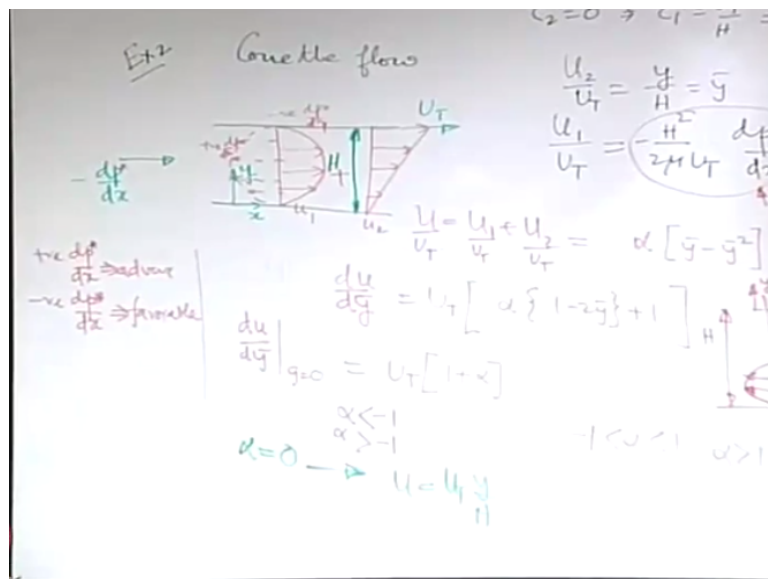 C₂=0 ⇒ C₁ = H =
Ex.2 Couette flow
U₂/U_T = y/H = ȳ
U₁/U_T = -H²/2μU_T dp
-ve dp*/dx U_T
+ve dp*
- dp*/dx
H
y
x u₁ u₂
U/U_T = U₁/U_T + U₂/U_T = α[ȳ-ȳ²]
+ve dp*/dx ⇒ adverse
-ve dp*/dx ⇒ favorable
du/dȳ = U_T[α{1-2ȳ}+1]
H
du/dȳ|ȳ=0 = U_T[1+α]
α<-1
α>-1
-1<α<1 α>1
α=0 → U = U_T y/H